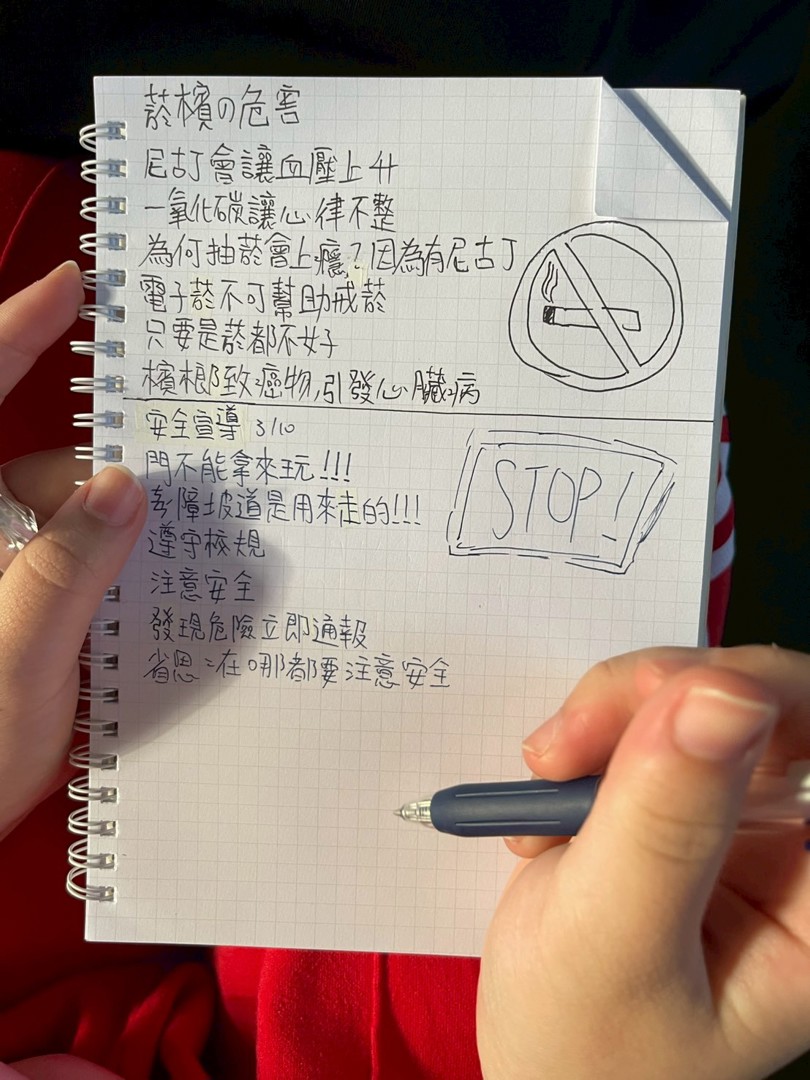 菸檳の危害
尼古丁會讓血壓上升
一氧化碳讓心律不整
為何抽菸會上癮?因為有尼古丁
電子菸不可幫助戒菸
只要是菸都不好
檳榔致癌物,引發心臟病
安全宣導 3/10
門不能拿來玩!!!
障坡道是用來走的!!!
遵守校規
注意安全
發現危險立即通報
省思:在哪都要注意安全
STOP!